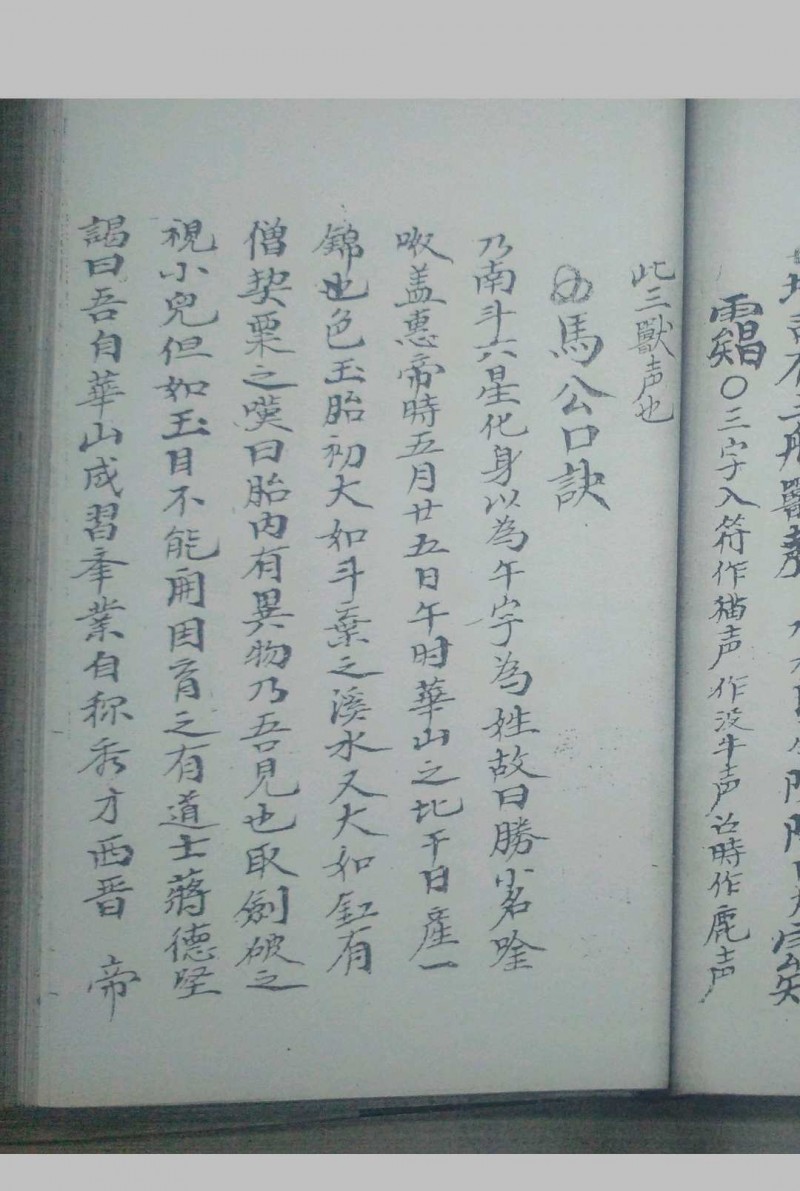 三
○三字入符作猫声作没牛声召時作鹿声
此三獸声也
馬公口訣
乃南斗六星化身以為午字為姓故曰勝小名唫
呶盖惠帝時五月廿五日午时華山之北午日產一
錦也色玉胎初大如斗棄之溪水又大如缸有
僧契栗之嘆曰胎内有異物乃吾見也取劍破之
視小兒但如玉目不能開因育之有道士蔣德堅
謁曰吾自華山成習夆業自称秀才西晋 帝